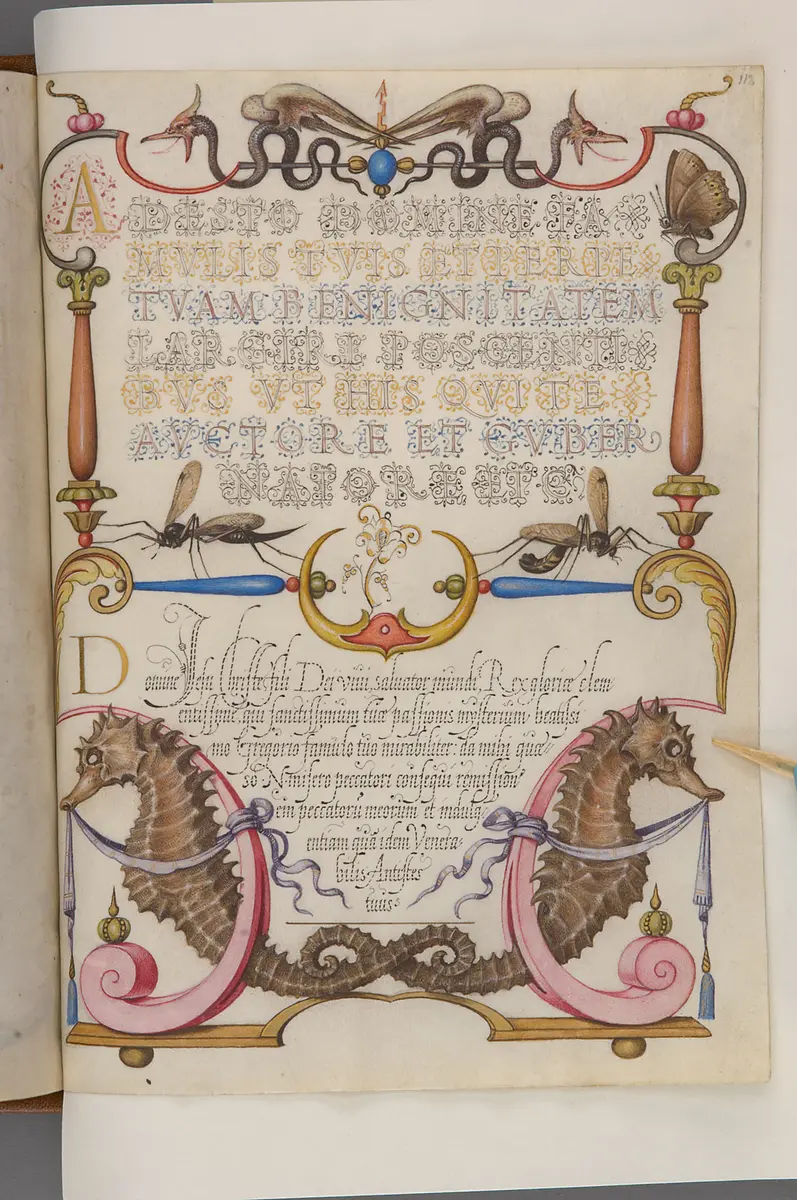 113
ADESTO DOMINE FA
MVLIS TVIS ET PERPE
TVAM BENIGNITATEM
LARGIRE POSCENTI
BVS VT HIS QVI TE
AVCTORE ET GVBER
NATORE ET C
Domine Jesu Christe fili Dei viui, saluator mundi, Rex gloriæ clem
entissime, qui sanctissimum tuæ passionis mysterium beatissi
mo Gregorio famulo tuo mirabiliter: da mihi quæ
so Misero peccatori consequi remission
em peccatorũ meorum et indulg
entiam quã idem Venera
bilis Antistes
tuus